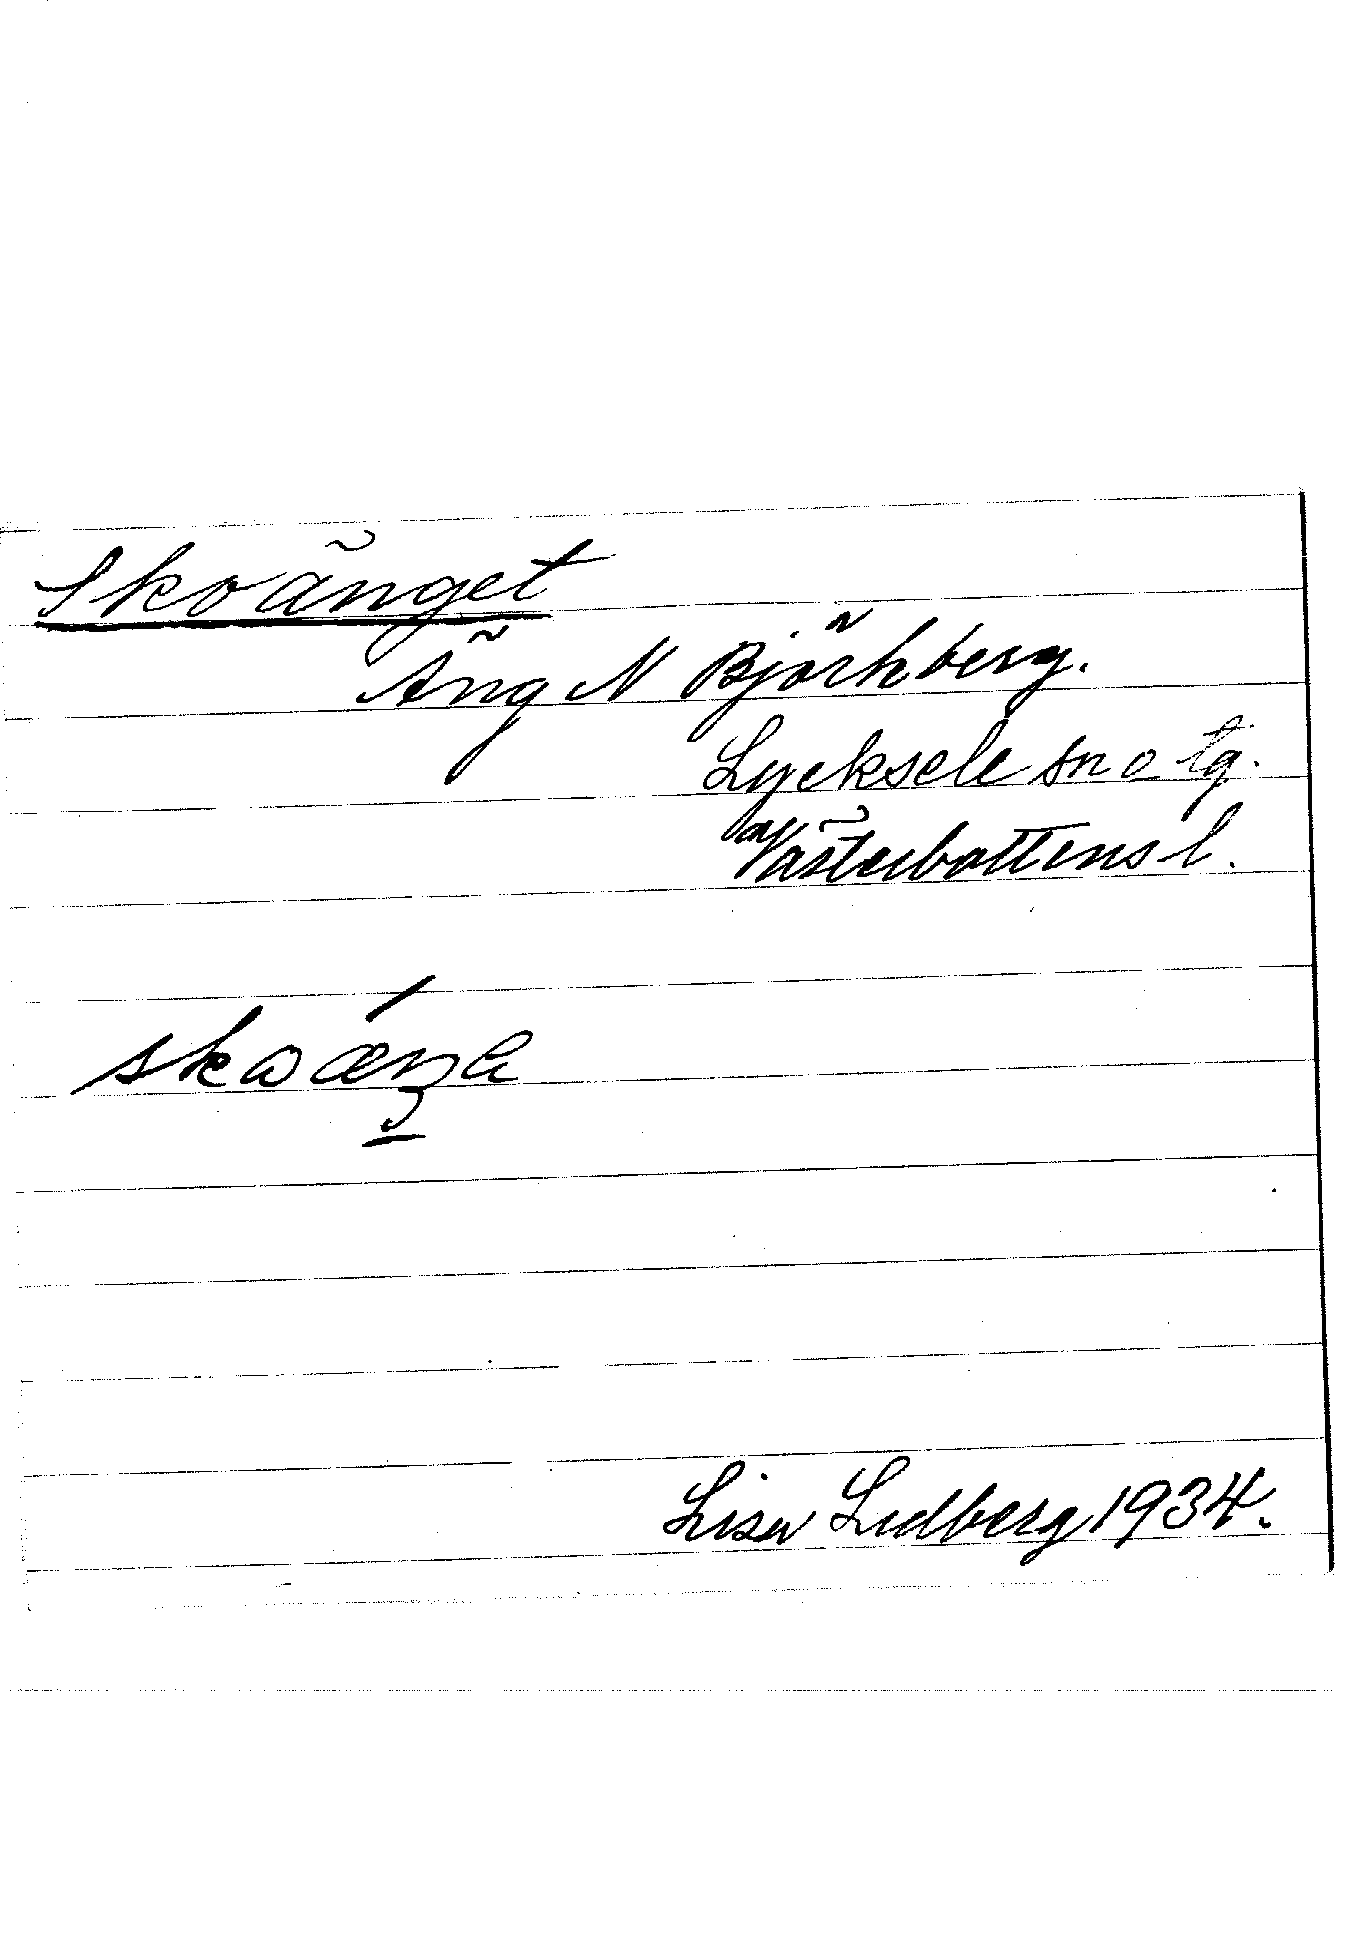 Skoänget
Äng N Björkberg.
Lycksele sn o tg.
av Västerbottens l.
Lisa Lidberg 1934.